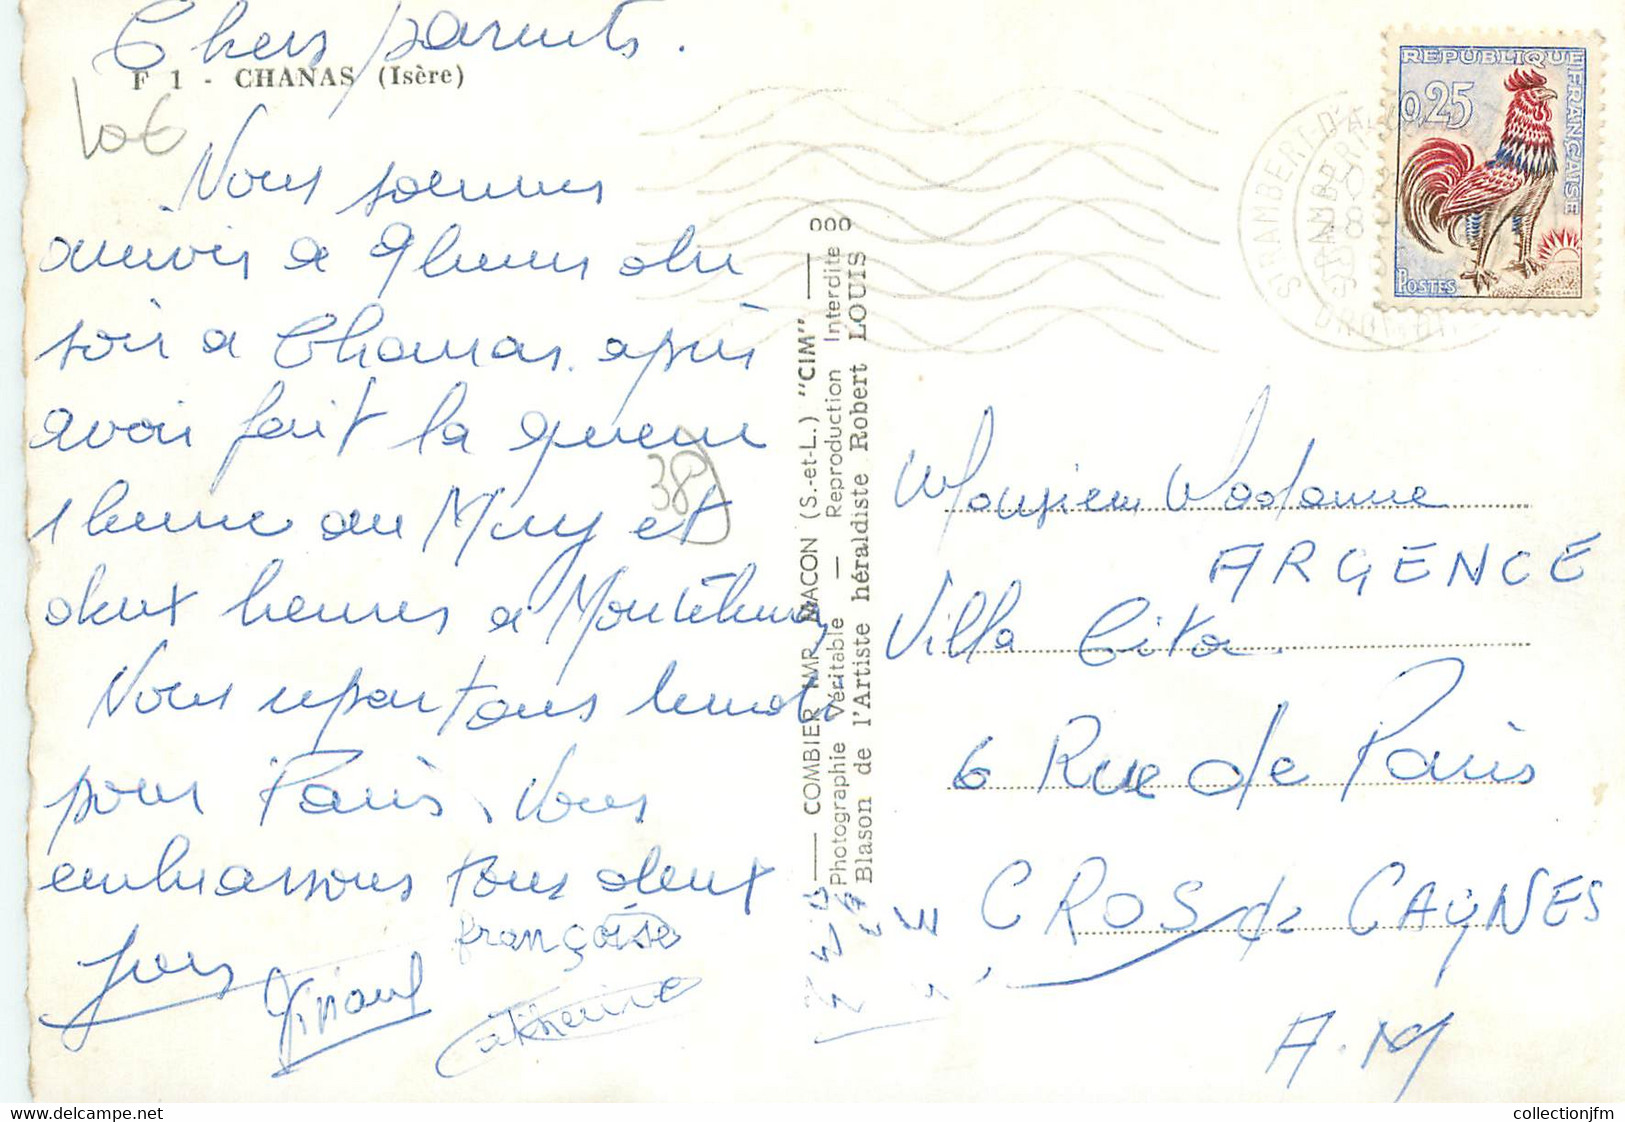 Chers parents.
F 1 - CHANAS (Isère)
10€
Nous sommes
arrivés a 9 heures du
soir a Chanas. après
avoir fait la queue
1 heure au Muy et
deux heures a Montélimar
Nous repartons lundi
pour Paris. Vous
embrassons tous deux
françoise
Catherine
38
COMBIER IMP. MACON (S.-et-L.) "CIM"
Photographie Véritable — Reproduction Interdite
Blason de l'Artiste héraldiste Robert LOUIS
REPUBLIQUE FRANÇAISE
0,25
POSTES
Monsieur Madame
ARGENCE
Villa Cita.
6 Rue de Paris
CROS de CAGNES
A.M
collectionjfm